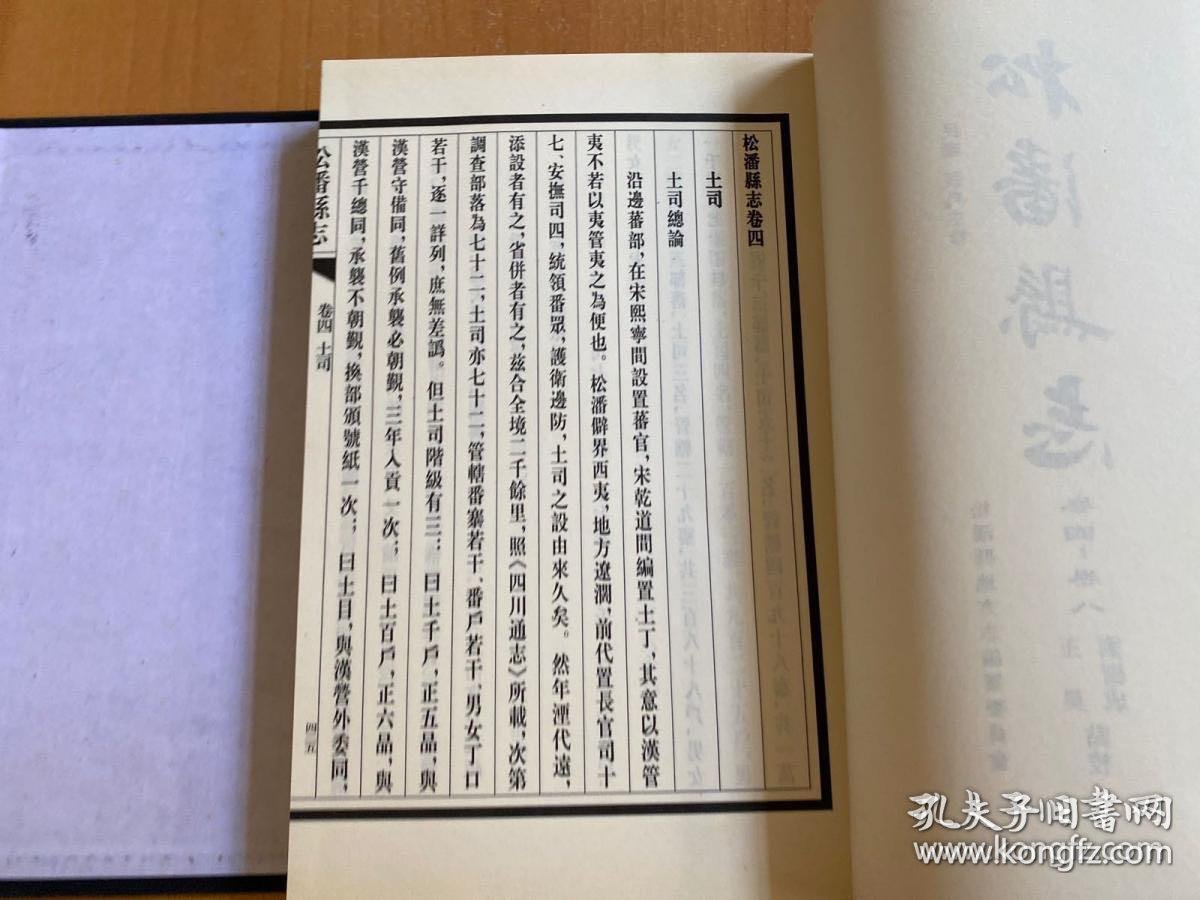 松潘縣志卷四
土司
土司總論
沿邊蕃部，在宋熙寧間設置蕃官，宋乾道間編置土丁，其意以漢管
夷不若以夷管夷之為便也。松潘僻界西夷，地方遼濶，前代置長官司十
七、安撫司四，統領番眾，護衛邊防，土司之設由來久矣。然年湮代遠，
添設者有之，省併者有之，兹合全境二千餘里，照《四川通志》所載，次第
調查部落為七十二，土司亦七十二，管轄番寨若干、番戶若干、男女丁口
若干，逐一詳列，庶無差譌。但土司階級有三：曰土千戶，正五品，與
漢營守備同，舊例承襲必朝覲，三年入貢一次；曰土百戶，正六品，與
漢營千總同，承襲不朝覲，換部頒號紙一次；曰土目，與漢營外委同，
松潘縣志
卷四 土司
四二五
孔夫子旧书网
www.kongfz.com